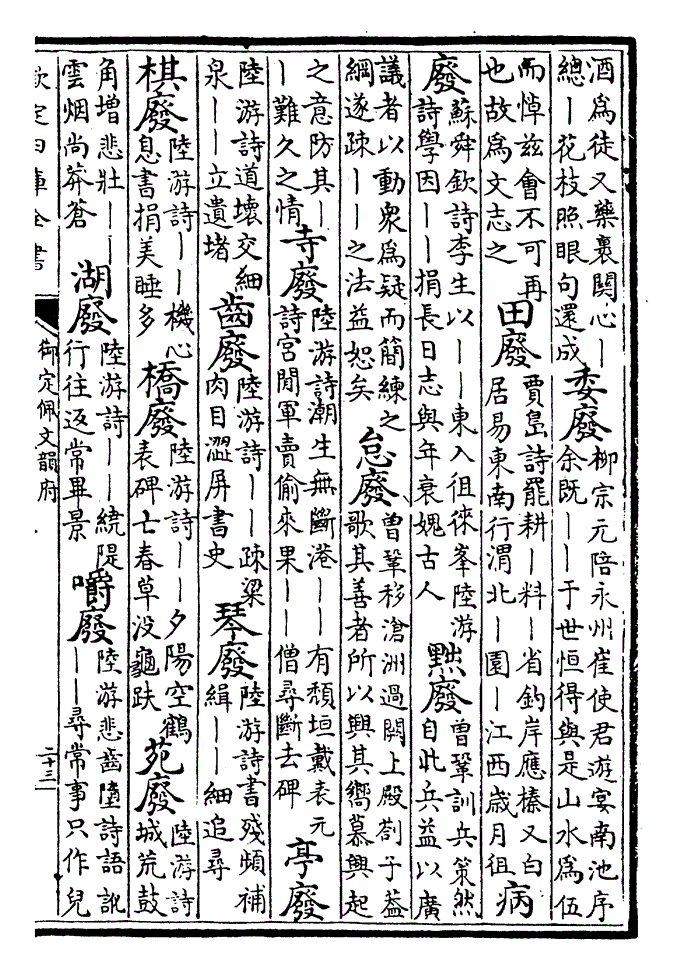 酒為徒又藥裹關心｜
總｜花枝照眼句還成
委廢
柳宗元陪永州崔使君遊宴南池序
余既｜｜于世恒得與是山水為伍
而悼茲會不可再
也故為文志之
田廢
賈島詩罷耕｜料｜省釣岸應榛又白
居易東南行渭北｜園｜江西歲月徂
病
廢
蘇舜欽詩李生以｜｜東入徂徠峯陸游
詩學因｜｜捐長日志與年衰媿古人
黜廢
曾鞏訓兵策然
自此兵益以廣
議者以動衆為疑而簡練之
綱遂疎｜｜之法益恕矣
怠廢
曾鞏移滄洲過闕上殿劄子蓋
歌其善者所以興其嚮慕興起
之意防其｜
｜難久之情
寺廢
陸游詩潮生無斷港｜｜有頹垣戴表元
詩宮閒軍賣偷來果｜｜僧尋斷去碑
亭廢
陸游詩道壞交細
泉｜｜立遺堵
齒廢
陸游詩｜｜疎梁
肉目澀屏書史
琴廢
陸游詩書殘頻補
緝｜｜細追尋
棋廢
陸游詩｜｜機心
息書捐美睡多
橋廢
陸游詩｜｜夕陽空鶴
表碑亡春草没龜趺
苑廢
陸游詩
城荒鼓
角增悲壯｜｜
雲烟尚莽蒼
湖廢
陸游詩｜｜繞隄
行往返常畢景
嚼廢
陸游悲齒墮詩語訛
｜｜尋常事只作兒
欽定四庫全書
御定佩文韻府
二十三